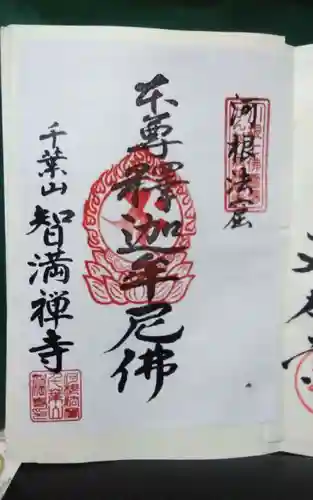 河根法窟
本尊釋迦牟尼佛
千葉山
智満禅寺